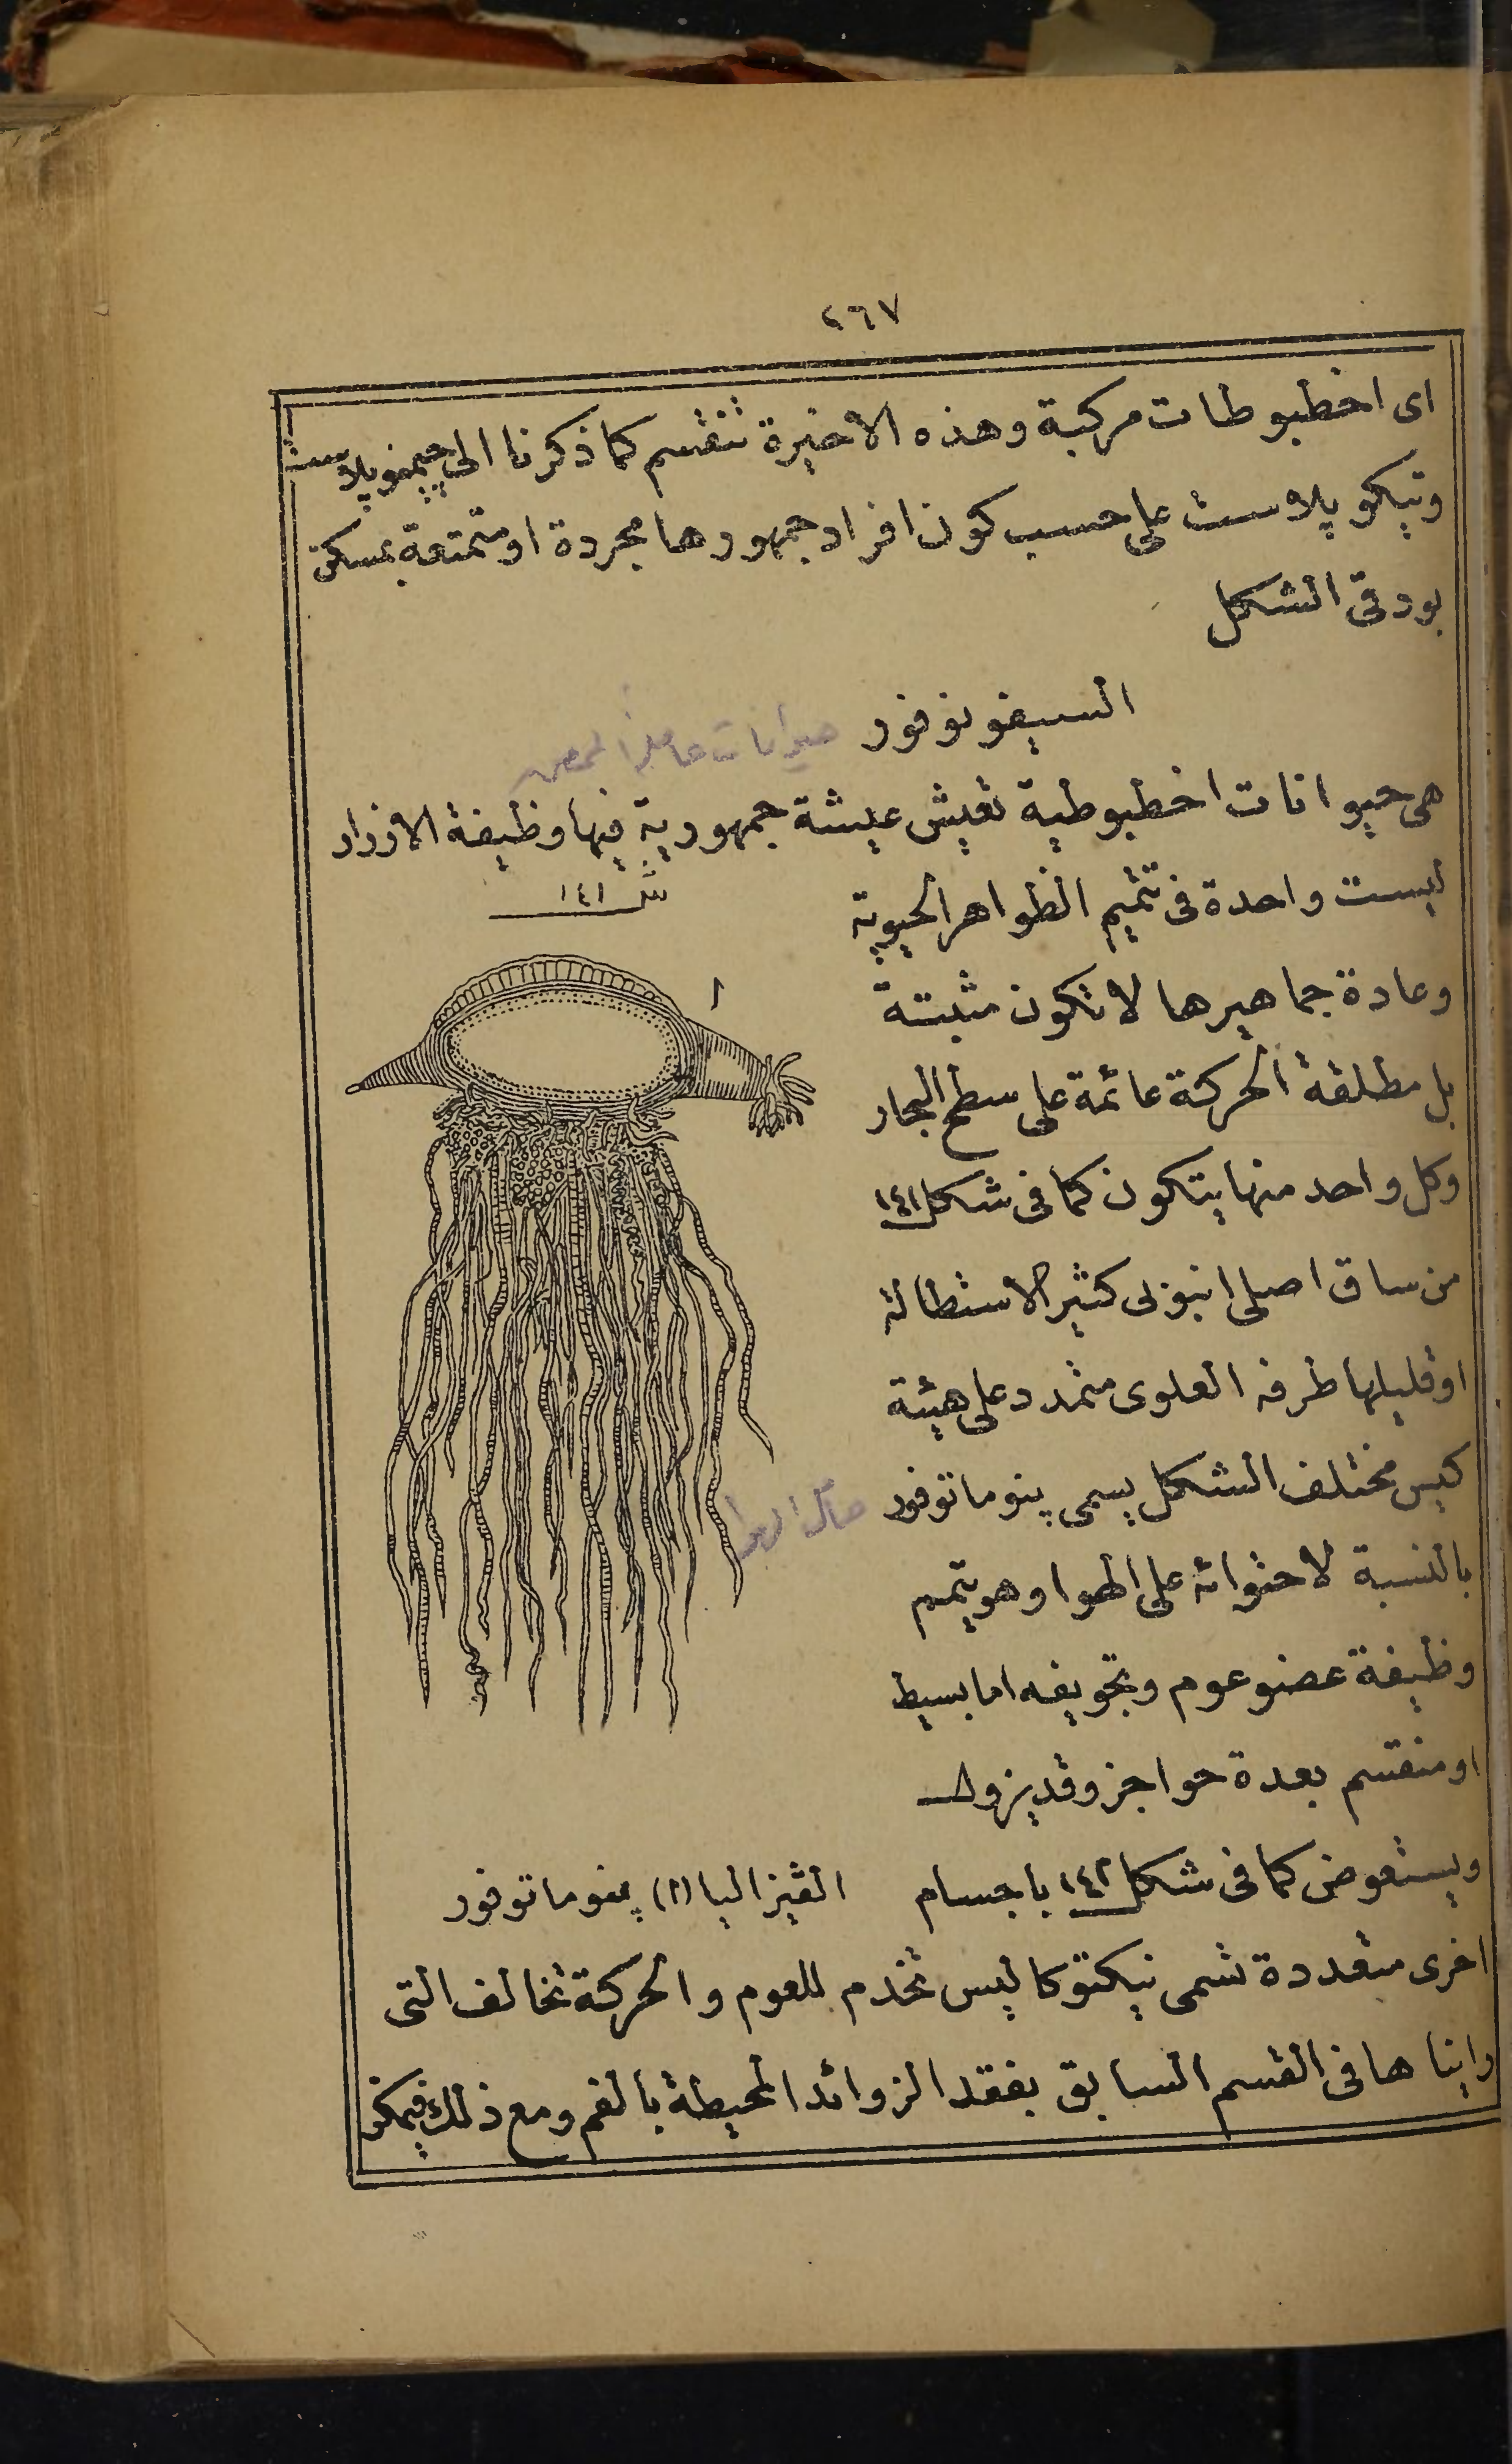 ٢٦٧
اى اخطبوطات مركبة وهذه الاخيرة تنقسم كما ذكرنا الى چيمنوپلاست
وتيكوپلاست على حسب كون افراد جمهورها مجردة او متمتعة بمسكن
بودقى الشكل
السيفونوفور حيوانات حاملة
هى حيوانات اخطبوطية تعيش عيشة جمهورية فيها وظيفة الافراد
ليست واحدة فى تتميم الظواهر الحيوية
شكل ١٤١
وعادة جماهيرها لا تكون مثبتة
ا
بل مطلقة الحركة عائمة على سطح البحار
وكل واحد منها يتكون كما فى شكل ١٤١
من ساق اصلى انبوبى كثير الاستطالة
او قليلها طرفه العلوى متمدد على هيئة
كيس مختلف الشكل يسمى پنوماتوفور حامل الهوا
بالنسبة لاحتوائه على الهوا وهو يتمم
وظيفة عضو عوم وتجويفه اما بسيط
او منقسم بعدة حواجز وقد يزول
ويستعوض كما فى شكل ١٤٢ باجسام
الڤيزاليا (١) پنوماتوفور
اخرى متعددة تسمى نيكتوكاليس تخدم للعوم والحركة تخالف التى
رايناها فى القسم السابق بفقد الزوائد المحيطة بالفم ومع ذلك فيمكن